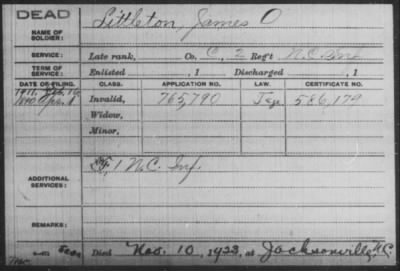 DEAD
NAME OF SOLDIER: Littleton, James O
SERVICE: Late rank, Co. C, 2 Reg't N.C. Inf
TERM OF SERVICE: Enlisted , 1 Discharged , 1
DATE OF FILING. CLASS. APPLICATION NO. LAW. CERTIFICATE NO.
Invalid, 765,790 586,179
Widow,
Minor,
ADDITIONAL SERVICES: F, 1 N.C. Inf.
REMARKS:
Died Nov. 10, 1923, at Jacksonville, N.C.